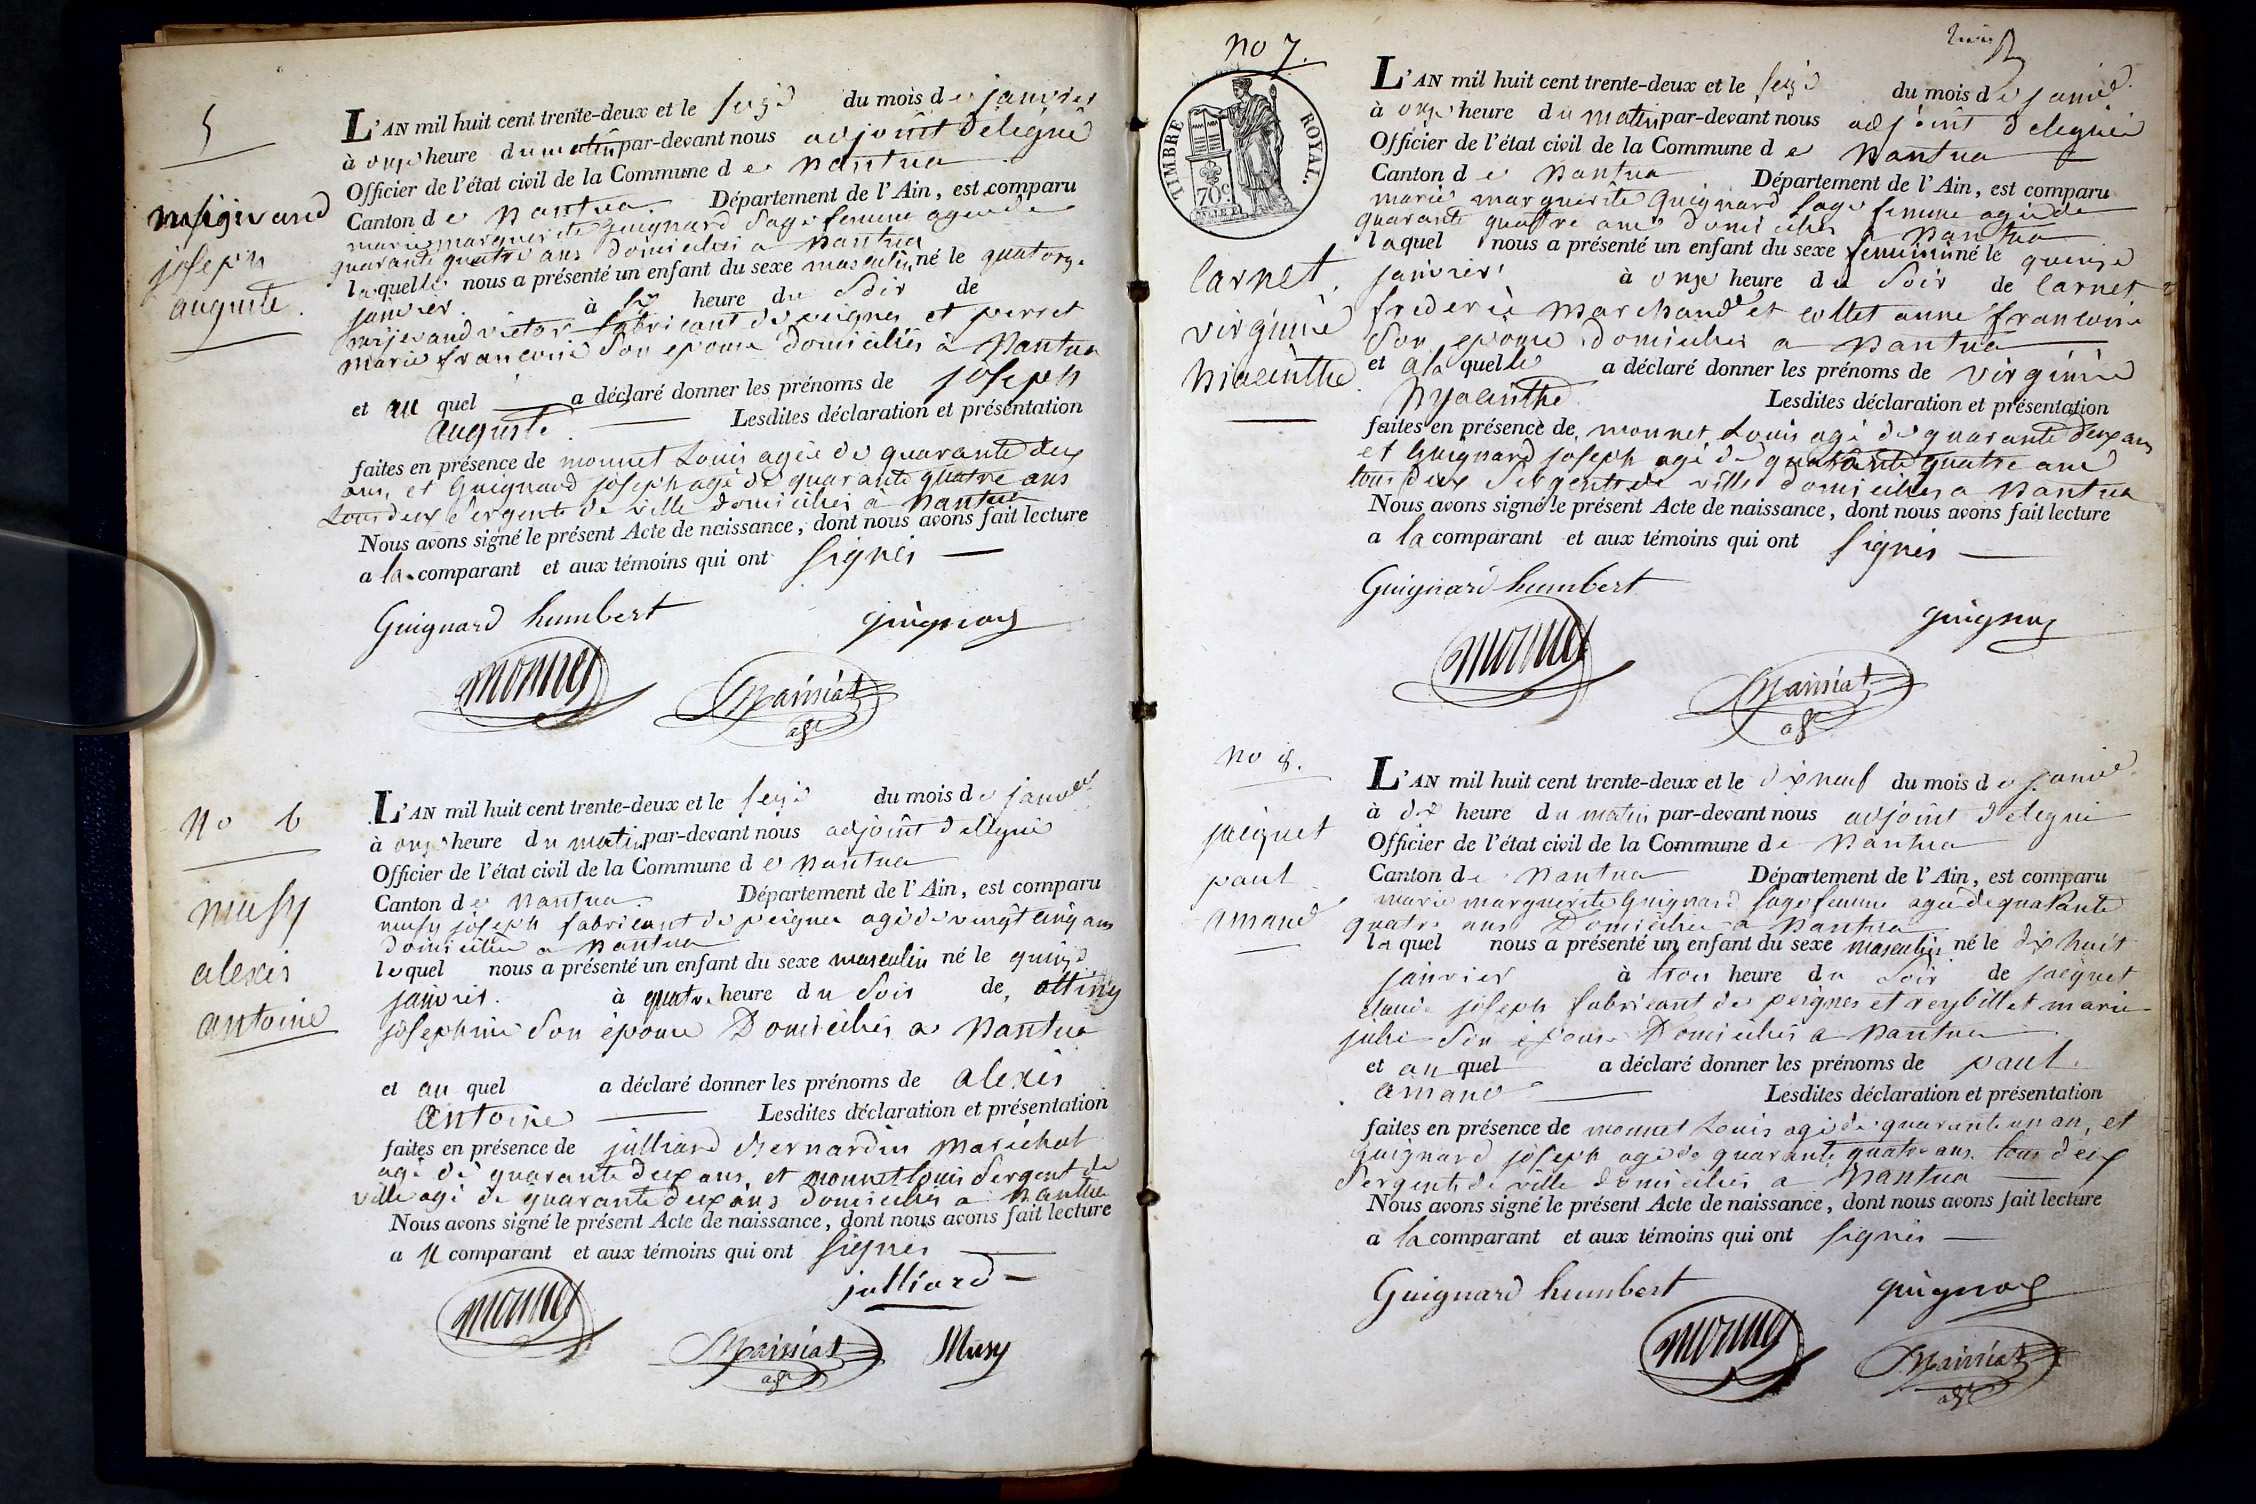 5
joseph
auguste.
L'AN mil huit cent trente-deux et le seize du mois de janvier
à onze heure du matin par-devant nous adjoint delegué
Officier de l'état civil de la Commune de Nantua
Canton de Nantua Département de l'Ain, est comparu
marie marguerite Guignard sage femme agée de
quarante quatre ans domiciliée a Nantua
laquelle nous a présenté un enfant du sexe masculin né le quatorze
janvier. à six heure du soir de
victor fabricant de peignes et perret
marie francoise son epouse domiciliés à Nantua
et au quel a déclaré donner les prénoms de joseph
auguste. Lesdites déclaration et présentation
faites en présence de monnet Louis agée de quarante deux
ans, et Guignard joseph agé de quarante quatre ans
tous deux sergents de ville domiciliés à Nantua
Nous avons signé le présent Acte de naissance, dont nous avons fait lecture
a la comparant et aux témoins qui ont signés
Guignard humbert guignard
monnet Maissiat
adt
No 6
musy
alexis
antoine
L'AN mil huit cent trente-deux et le seize du mois de janvier
à onze heure du matin par-devant nous adjoint delegué
Officier de l'état civil de la Commune de Nantua
Canton de Nantua. Département de l'Ain, est comparu
musy joseph fabricant de peignes agé de vingt cinq ans
domicilié a Nantua
lequel nous a présenté un enfant du sexe masculin né le quinze
janvier. à quatre heure du soir de
josephine son épouse Domiciliés a Nantua
et au quel a déclaré donner les prénoms de alexis
antoine Lesdites déclaration et présentation
faites en présence de julliard Bernardin maréchal
agé de quarante deux ans, et monnet louis sergent de
ville agé de quarante deux ans domiciliés a Nantua
Nous avons signé le présent Acte de naissance, dont nous avons fait lecture
a le comparant et aux témoins qui ont signés
monnet julliard
Maissiat Musy
adt
No 7.
TIMBRE ROYAL.
70c
Carnet.
virginie
hiacinthe.
L'AN mil huit cent trente-deux et le seize du mois de janvier
à onze heure du matin par-devant nous adjoint delegué
Officier de l'état civil de la Commune de Nantua
Canton de Nantua Département de l'Ain, est comparu
marie marguerite Guignard sage femme agée de
quarante quatre ans domiciliée a Nantua
laquel nous a présenté un enfant du sexe feminin né le quinze
janvier à onze heure du soir de Carnet
frederic marchand et collet anne francoise
son epouse domiciliés a Nantua
et a la quelle a déclaré donner les prénoms de virginie
hyacinthe Lesdites déclaration et présentation
faites en présence de monnet Louis agé de quarante deux ans
et Guignard joseph agé de quarante quatre ans
tous deux sergents de ville domiciliés a Nantua
Nous avons signé le présent Acte de naissance, dont nous avons fait lecture
a la comparant et aux témoins qui ont signés
Guignard humbert
guignard
monnet Maissiat
adt
No 8.
jacquet
paul
amand
L'AN mil huit cent trente-deux et le dix neuf du mois de janvier
à dix heure du matin par-devant nous adjoint delegué
Officier de l'état civil de la Commune de Nantua
Canton de Nantua Département de l'Ain, est comparu
marie marguerite Guignard sage femme agée de quarante
quatre ans Domiciliée a Nantua
laquel nous a présenté un enfant du sexe masculin né le dix huit
janvier à trois heure du soir de jacquet
claude joseph fabricant de peignes et reybillet marie
julie son épouse Domiciliés a Nantua
et au quel a déclaré donner les prénoms de paul.
amand Lesdites déclaration et présentation
faites en présence de monnet Louis agé de quarante un an, et
guignard joseph agé de quarante quatre ans tous deux
sergents de ville domiciliés a Nantua
Nous avons signé le présent Acte de naissance, dont nous avons fait lecture
a la comparant et aux témoins qui ont signés
Guignard humbert guignard
monnet Maissiat
adt